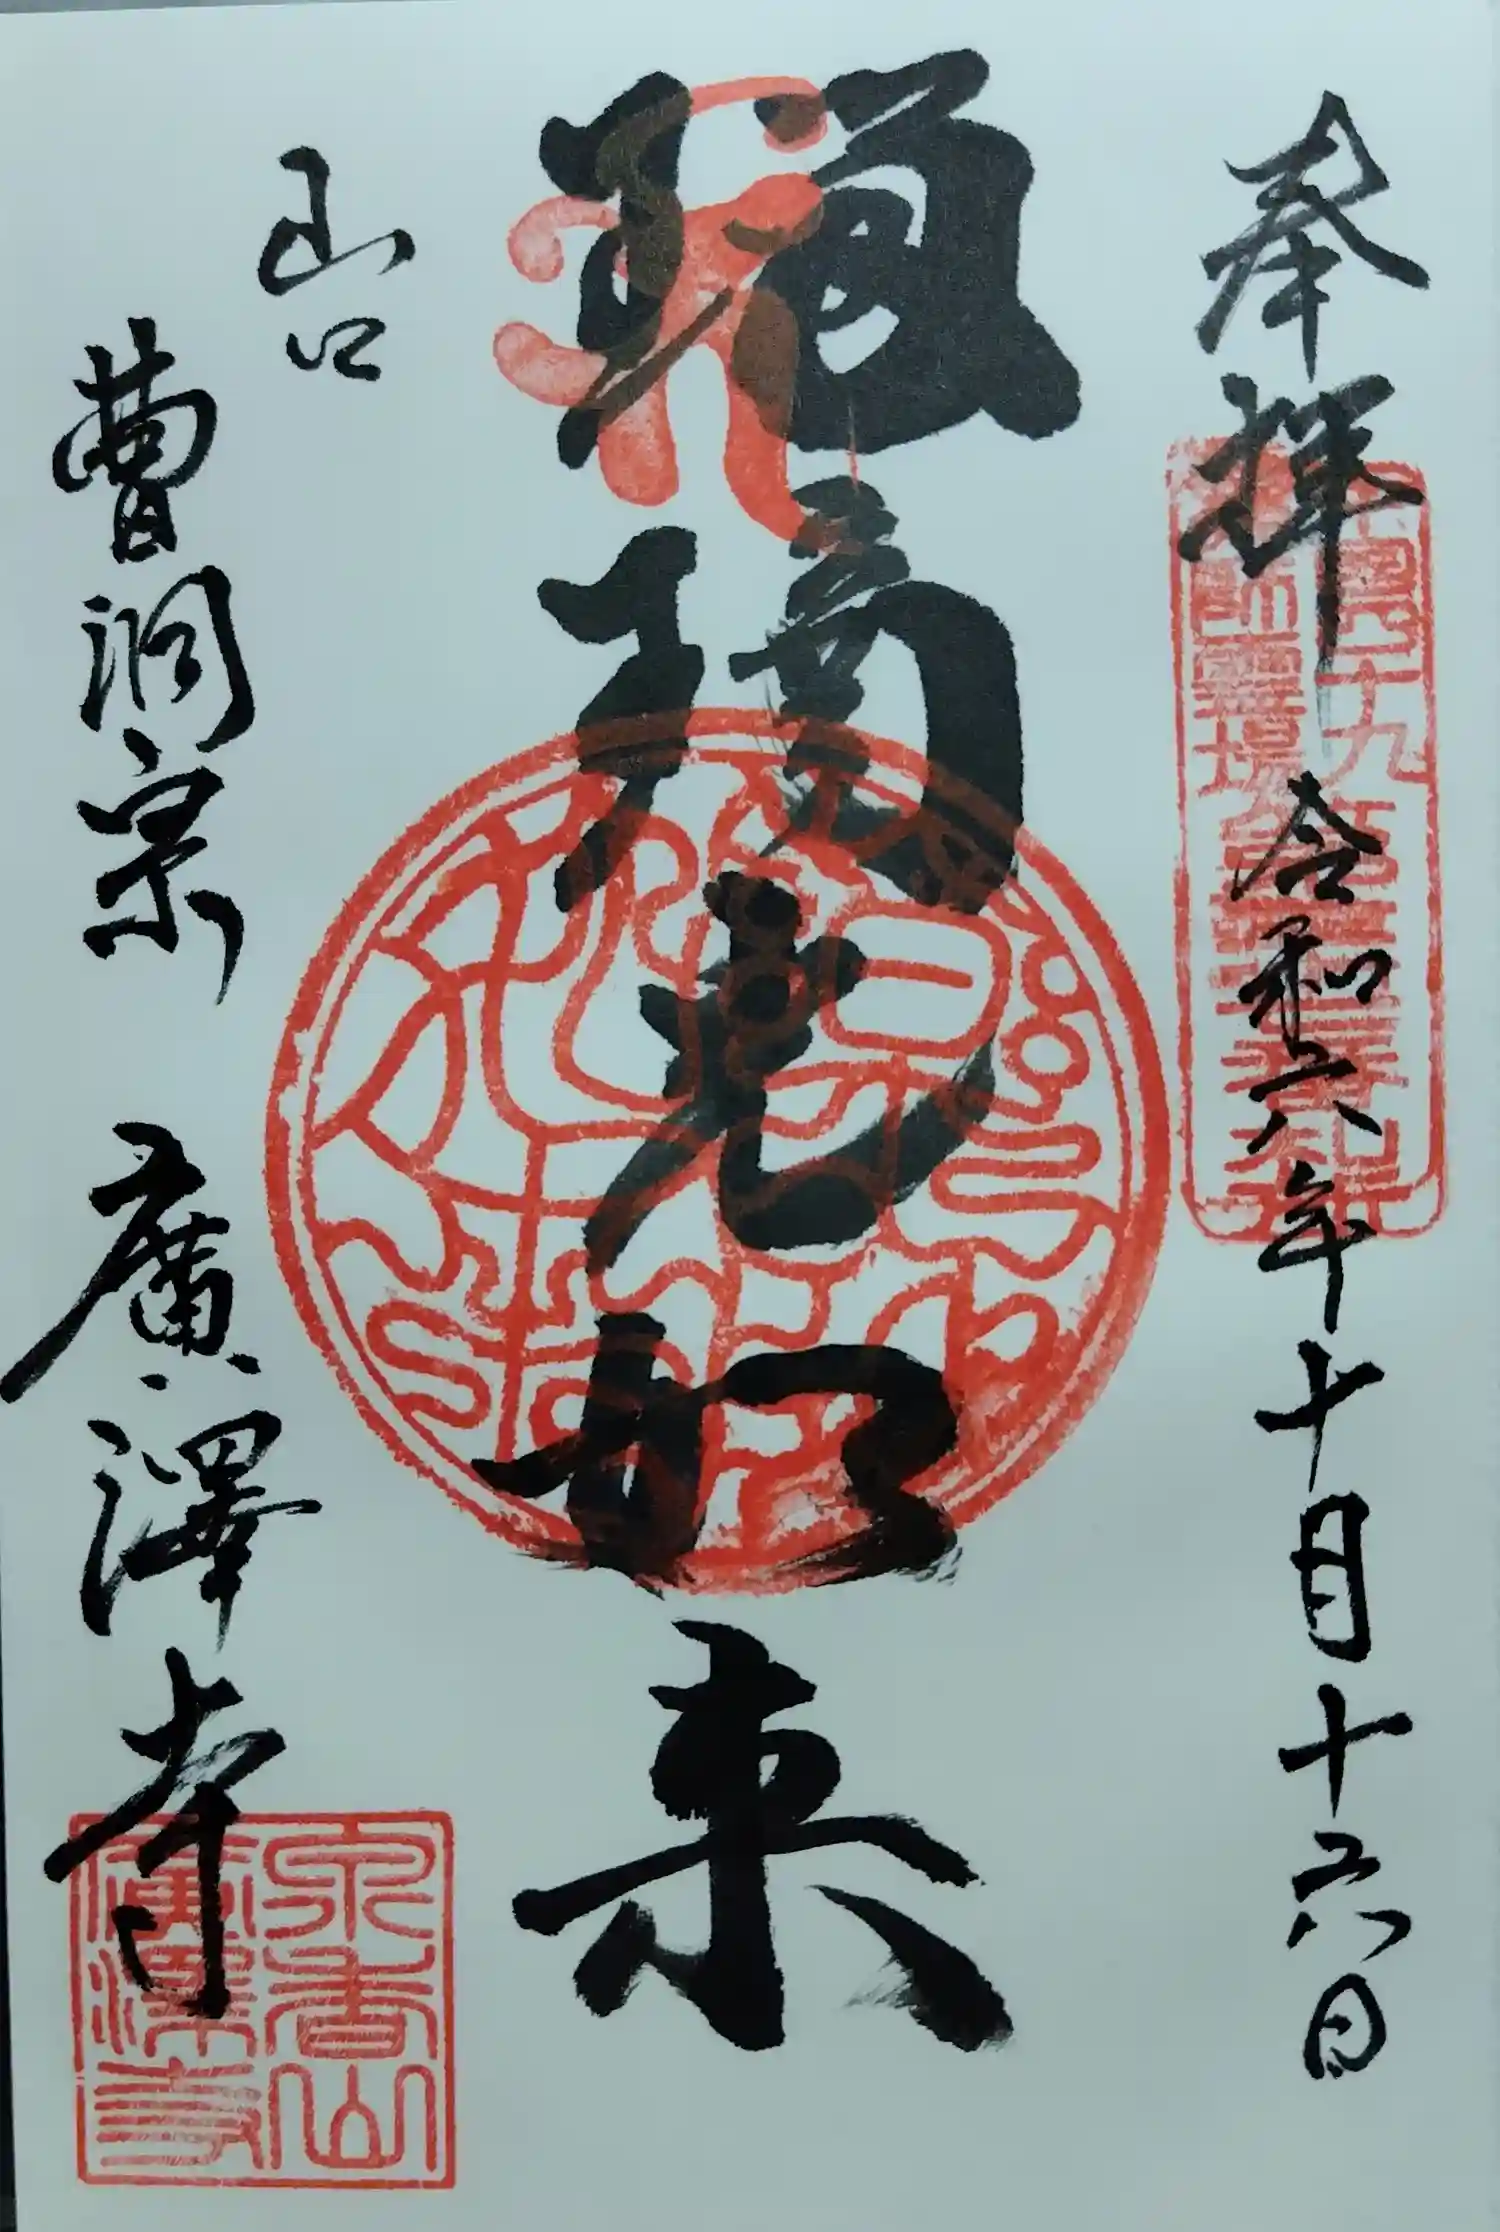 奉拝
令和六年十月十六日
瑠璃光如来
山口
曹洞宗 廣澤寺
泉香山
廣澤寺